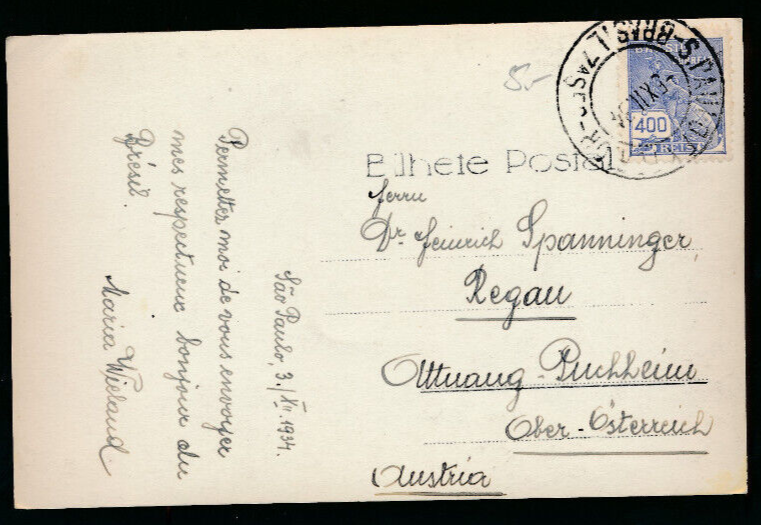 5.-
BRASIL
400
REIS
S. PAULO
BRASIL
Bilhete Postal
Herrn
Dr. Heinrich Spanninger
Regau
Attnang-Puchheim
Ober-Österreich
Austria
São Paulo, 3./XII.1934.
Permettez moi de vous envoyer
mes respectueux bonjour du
Brésil.
Maria Wieland